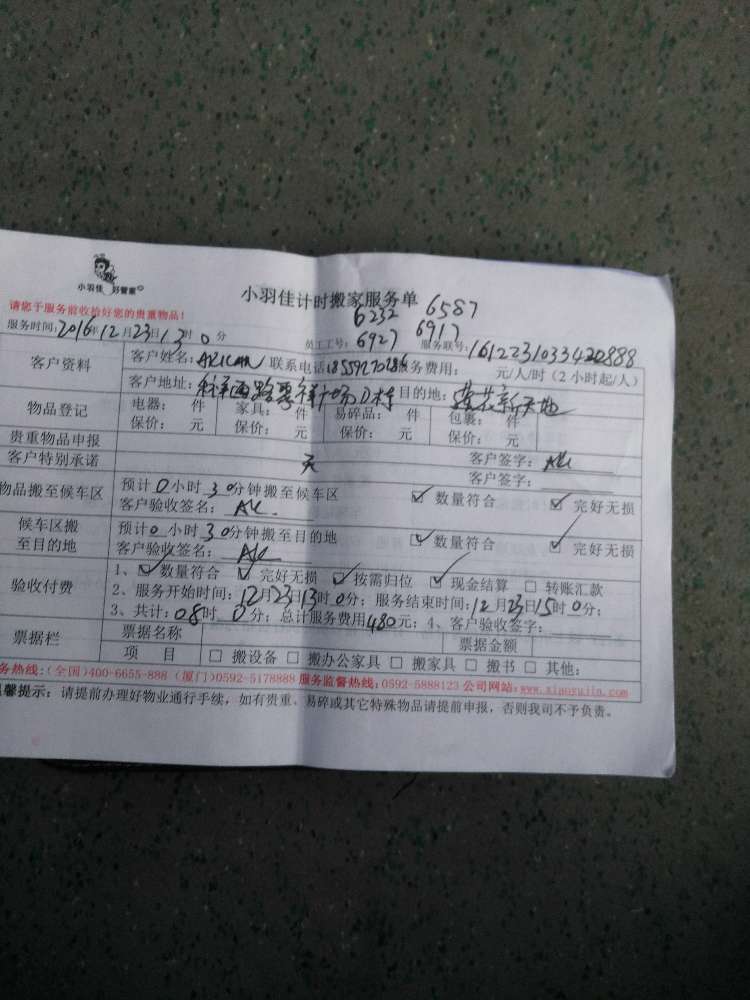 小羽佳 好管家
小羽佳计时搬家服务单
请您于服务前收拾好您的贵重物品!
6232 6587
服务时间:2016年12月23日13时0分 员工工号:6927 6917 服务联号:
客户资料 客户姓名: 联系电话 服务费用: 元/人/时(2小时起/人)
客户地址: 目的地:莲花新天地
物品登记 电器: 件 家具: 件 易碎品: 件 包裹: 件
保价: 元 保价: 元 保价: 元 保价: 元
贵重物品申报
客户特别承诺 无 客户签字:AK
客户签字:
物品搬至候车区 预计0小时30分钟搬至候车区 ☑数量符合 ☑完好无损
客户验收签名:AK
候车区搬至目的地 预计0小时30分钟搬至目的地 ☑数量符合 ☑完好无损
客户验收签名:AK
验收付费 1、☑数量符合 ☑完好无损 ☑按需归位 ☑现金结算 □转账汇款
2、服务开始时间:12月23日13时0分;服务结束时间:12月23日15时0分;
3、共计:08时0分;总计服务费用480元;4、客户验收签字:
票据栏 票据名称 票据金额
项 目 □搬设备 □搬办公家具 □搬家具 □搬书 □其他:
务热线:(全国)400-6655-888 (厦门)0592-5178888 服务监督热线:0592-5888123 公司网站:www.xiaoyujia.com
温馨提示:请提前办理好物业通行手续,如有贵重、易碎或其它特殊物品请提前申报,否则我司不予负责。